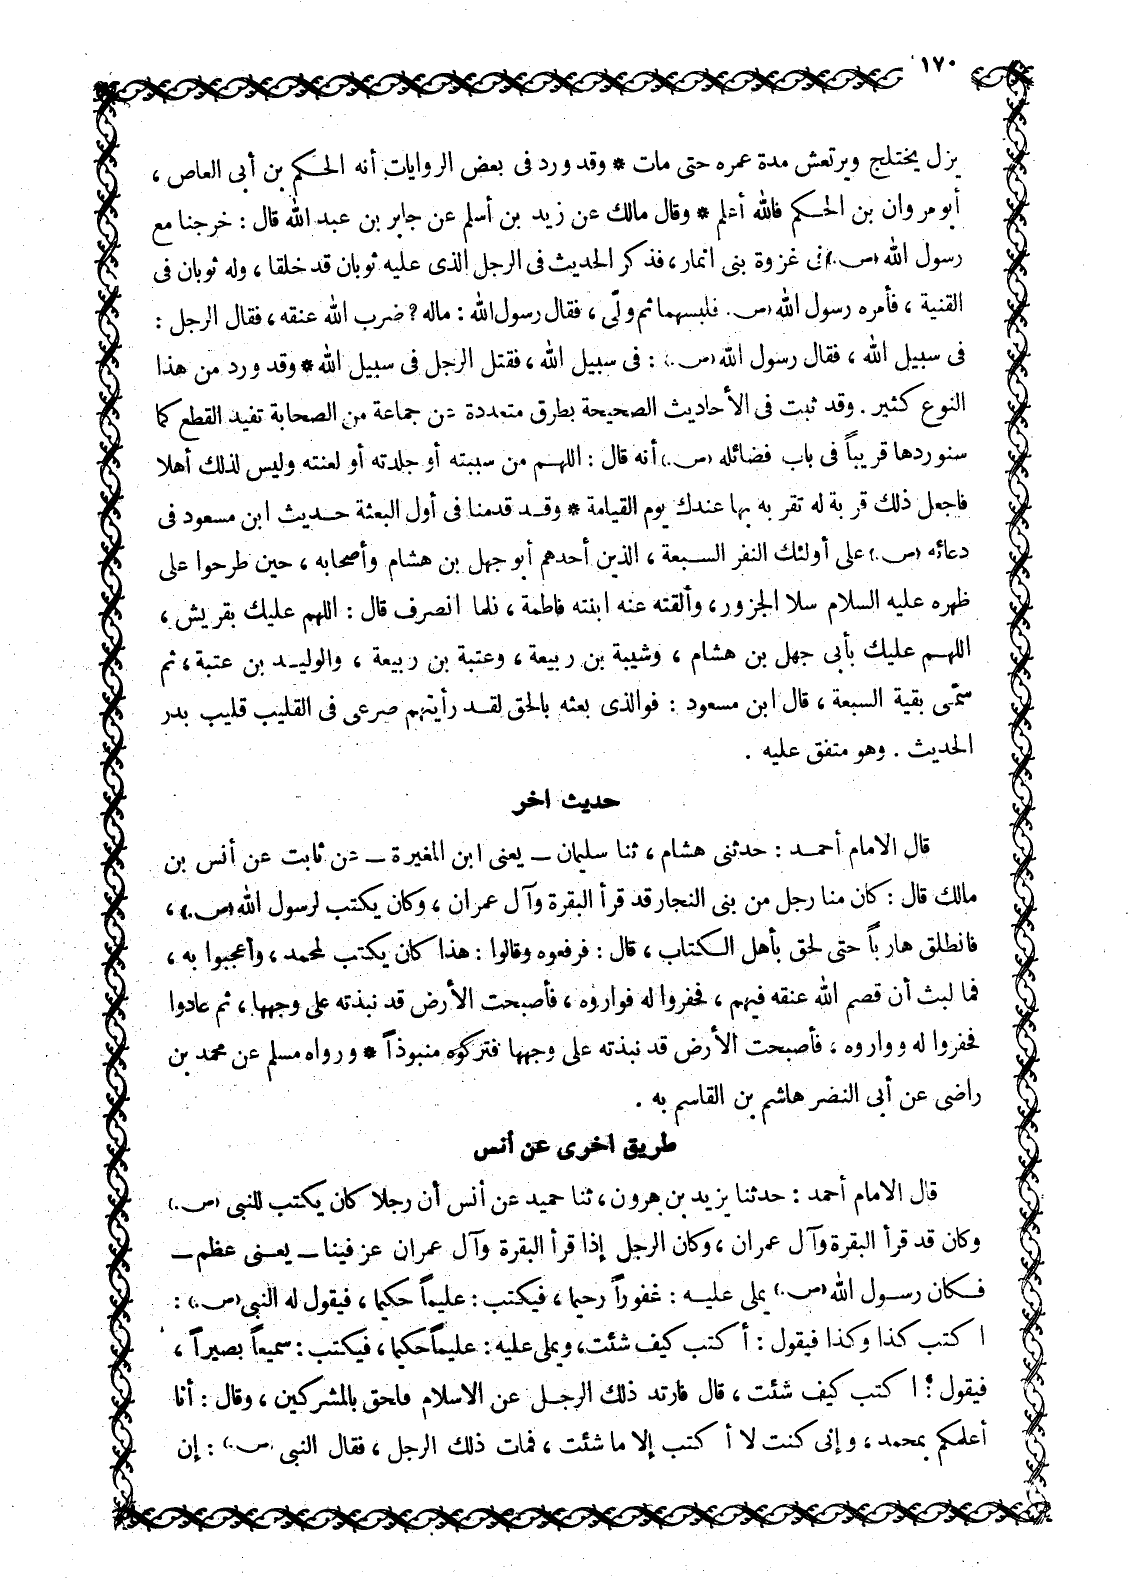 ١٧٠
يزل يختلج ويرتعش مدة عمره حتى مات * وقد ورد فى بعض الروايات أنه الحكم بن أبى العاص ،
أبو مروان بن الحكم فالله أعلم * وقال مالك عن زيد بن أسلم عن جابر بن عبد الله قال : خرجنا مع
رسول الله (ص.) فى غزوة بنى انمار، فذكر الحديث فى الرجل الذى عليه ثوبان قد خلقا ، وله ثوبان فى
القنية ، فأمره رسول الله (ص. فلبسهما ثم ولّى ، فقال رسول الله : ماله ؟ ضرب الله عنقه ، فقال الرجل :
فى سبيل الله ، فقال رسول الله (ص.) : فى سبيل الله ، فقتل الرجل فى سبيل الله * وقد ورد من هذا
النوع كثير . وقد ثبت فى الأحاديث الصحيحة بطرق متعددة عن جماعة من الصحابة تفيد القطع كما
سنوردها قريباً فى باب فضائله (ص.) أنه قال : اللهم من سببته أو جلدته أو لعنته وليس لذلك أهلا
فاجعل ذلك قربة له تقر به بها عندك يوم القيامة * وقد قدمنا فى أول البعثة حديث ابن مسعود فى
دعائه (ص.) على أولئك النفر السبعة ، الذين أحدهم أبو جهل بن هشام وأصحابه ، حين طرحوا على
ظهره عليه السلام سلا الجزور ، وألقته عنه ابنته فاطمة ، فلما انصرف قال : اللهم عليك بقريش ،
اللهم عليك بأبى جهل بن هشام ، وشيبة بن ربيعة ، وعتبة بن ربيعة ، والوليد بن عتبة ، ثم
سمّى بقية السبعة ، قال ابن مسعود : فوالذى بعثه بالحق لقد رأيتهم صرعى فى القليب قليب بدر
الحديث . وهو متفق عليه .
حديث اخر
قال الامام أحمد : حدثنى هشام ، ثنا سليمان ــ يعنى ابن المغيرة ــ عن ثابت عن أنس بن
مالك قال : كان منا رجل من بنى النجار قد قرأ البقرة وآل عمران ، وكان يكتب لرسول الله (ص.) ،
فانطلق هارباً حتى لحق بأهل الكتاب ، قال : فرفعوه وقالوا : هذا كان يكتب لمحمد ، وأعجبوا به ،
فما لبث أن قصم الله عنقه فيهم ، فحفروا له فواروه ، فأصبحت الأرض قد نبذته على وجهها ، ثم عادوا
فحفروا له وواروه ، فأصبحت الأرض قد نبذته على وجهها فتركوه منبوذاً * ورواه مسلم عن محمد بن
راضى عن أبى النضر هاشم بن القاسم به .
طريق اخرى عن أنس
قال الامام أحمد : حدثنا يزيد بن هرون ، ثنا حميد عن أنس أن رجلا كان يكتب للنبى (ص.)
وكان قد قرأ البقرة وآل عمران ، وكان الرجل إذا قرأ البقرة وآل عمران عز فينا ــ يعنى عظم ــ
فكان رسول الله (ص.) يملى عليه : غفوراً رحيما ، فيكتب : عليماً حكيما ، فيقول له النبى (ص.) :
اكتب كذا وكذا فيقول : أكتب كيف شئت، ويملى عليه : عليماً حكيما ، فيكتب : سميعاً بصيراً ،
فيقول : اكتب كيف شئت ، قال فارتد ذلك الرجل عن الاسلام فلحق بالمشركين ، وقال : أنا
أعلمكم بمحمد ، وإنى كنت لا أكتب إلا ما شئت ، فمات ذلك الرجل ، فقال النبى (ص.) : إن